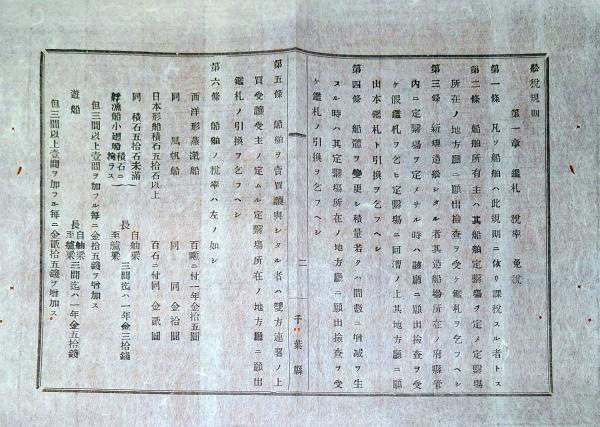 舩稅規則
第一章 鑑札 稅率 免稅
第一條 凡ソ船舶ハ此規則ニ依リ課稅スル者トス
第二條 船舶所有主ハ其船舶定繫場ヲ定メ定繫場
所在ノ地方廳ニ願出檢査ヲ受ケ鑑札ヲ乞フヘシ
第三條 新規造船シタル者其造船場所在ノ府縣管
內ニ定繫場ヲ定メサル時ハ該廳ニ願出檢查ヲ受
ケ假鑑札ヲ乞ヒ定繫場ニ回漕ノ上其地方廳ニ願
出本鑑札ト引換ヲ乞フヘシ
第四條 船體ヲ變更シ積量若クハ間數ニ增減ヲ生
スル時ハ其定繫場所在ノ地方廳ニ願出檢查ヲ受
ケ鑑札ノ引換ヲ乞フヘシ
二
千葉縣
第五條 船舶ヲ賣買讓與シタル者ハ雙方連署ノ上
買受讓受主ノ定ムル定繫場所在ノ地方廳ニ願出
鑑札ノ引換ヲ乞フヘシ
第六條 船舶ノ稅率ハ左ノ如シ
西洋形蒸滊船 百噸ニ付一年金拾五圓
同 風帆船 同 同 金拾圓
日本形船積石五拾石以上 百石ニ付同 金貳圓
同 積石五拾石未滿
艀漁船小廻船積石ニ拘ラス 長自舳梁至艫梁 三間迄ハ一年金三拾錢
但三間以上壹間ヲ加フル每ニ金拾五錢ヲ增加ス
遊船 長自舳梁至艫梁 三間迄ハ一年金五拾錢
但三間以上壹間ヲ加フル每ニ金貳拾五錢ヲ增加ス